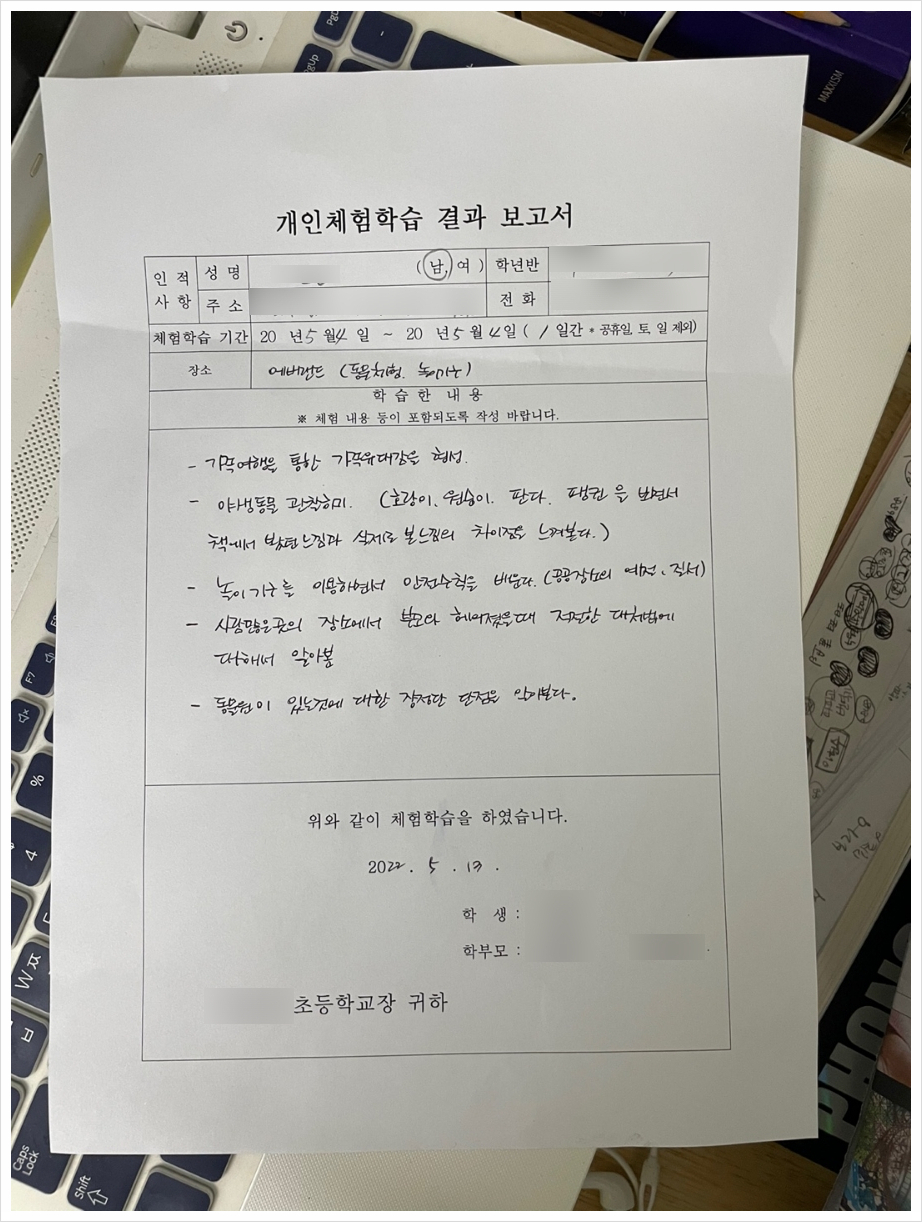 개인체험학습 결과 보고서
인 적 사 항
성 명 ( 남, 여 ) 학년반
주 소 전 화
체험학습 기간 20 년 5 월 4 일 ~ 20 년 5 월 4 일 ( 1 일간 * 공휴일, 토, 일 제외)
장소 에버랜드 (동물체험, 놀이기구)
학 습 한 내 용
※ 체험 내용 등이 포함되도록 작성 바랍니다.
- 가족여행을 통한 가족유대감을 형성.
- 야생동물 관찰하며. (호랑이, 원숭이, 판다, 팽귄 을 보면서
책에서 봤던느낌과 실제로 본느낌의 차이점을 느껴본다.)
- 놀이기구를 이용하면서 안전수칙을 배운다. (공공장소의 예절, 질서)
- 사람많은곳의 장소에서 부모와 헤어졌을때 적절한 대처법에
대해서 알아봄
- 동물원이 있는것에 대한 장점단 단점을 얘기본다.
위와 같이 체험학습을 하였습니다.
2022 . 5 . 13 .
학 생 :
학부모 :
초등학교장 귀하
MARXISM
PgUp
F7
%
4
W ㅉ
ㅂ
Caps Lock
Shift
PHONO